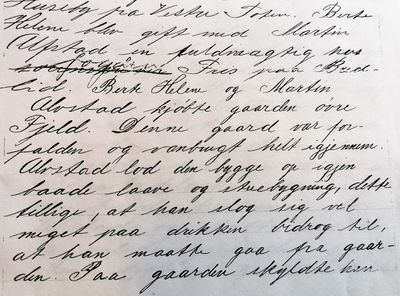 Huseby fra Vestre Toten, Berte
Helene blev gift med Martin
Alfstad en fuldmægtig hos
Friis paa Bud-
lid. Berte Helene og Martin
Alvstad kjøbte gaarden övre
Fjeld. Denne gaard var for-
falden og vanbrugt helt igjennem.
Alvstad lod den bygge op igjen
baade laave og stuebygning, dette
tillige, at han slog sig vel
meget paa drikken bidrog til,
at han maatte gaa fra gaar-
den. Paa gaarden skyldte han